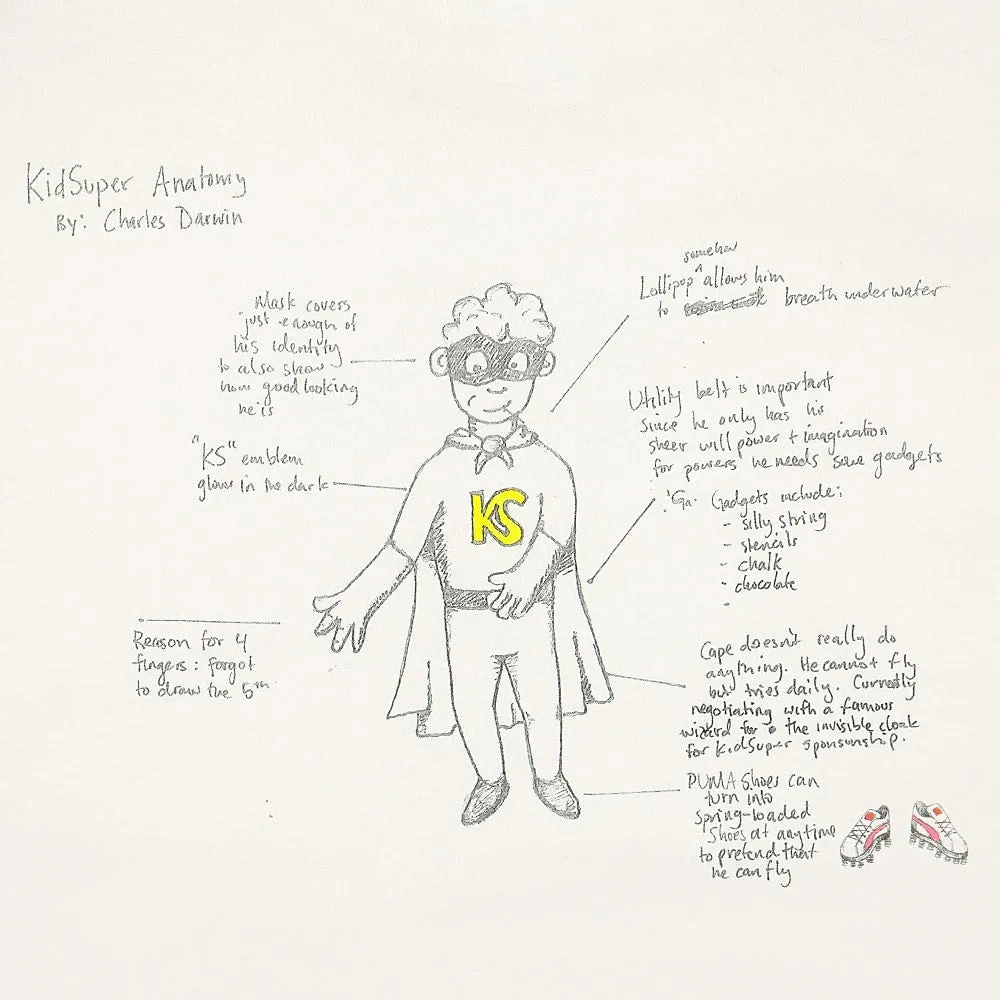 KidSuper Anatomy
By: Charles Darwin
Mask covers
just enough of
his identity
to also show
how good looking
he is
"KS" emblem
glows in the dark
Reason for 4
fingers: forgot
to draw the 5th
KS
somehow
Lollipop ^ allows him
to breath underwater
Utility belt is important
since he only has his
sheer will power + imagination
for powers he needs some gadgets
Gadgets include:
- silly string
- stencils
- chalk
- chocolate
Cape doesn't really do
anything. He cannot fly
but tries daily. Currently
negotiating with a famous
wizard for the invisible cloak
for KidSuper sponsorship.
PUMA Shoes can
turn into
spring-loaded
Shoes at anytime
to pretend that
he can fly